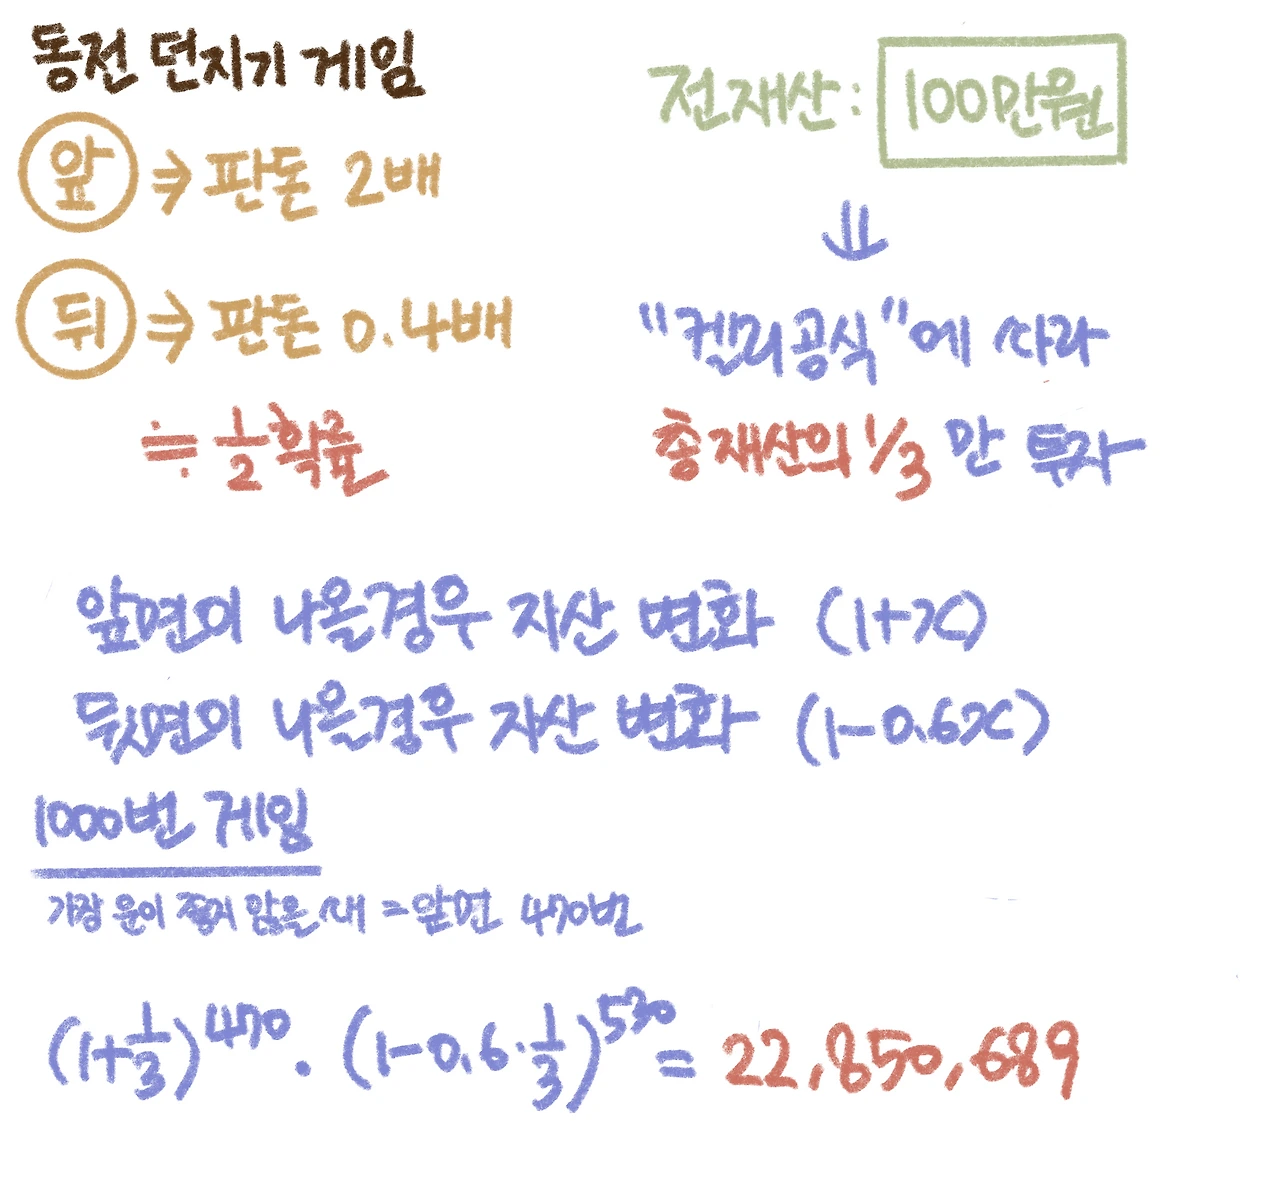 동전 던지기 게임
앞 ⇒ 판돈 2배
뒤 ⇒ 판돈 0.4배
≒ 1/2 확률
전재산 : 100만원
⇓
"켈리공식"에 따라
총 재산의 1/3 만 투자
앞면이 나올경우 자산 변화 (1+x)
뒷면이 나올경우 자산 변화 (1-0.6x)
1000번 게임
가장 운이 좋지 않을 때 = 앞면 470번
(1+1/3)^470 · (1-0.6·1/3)^530 = 22,850,689